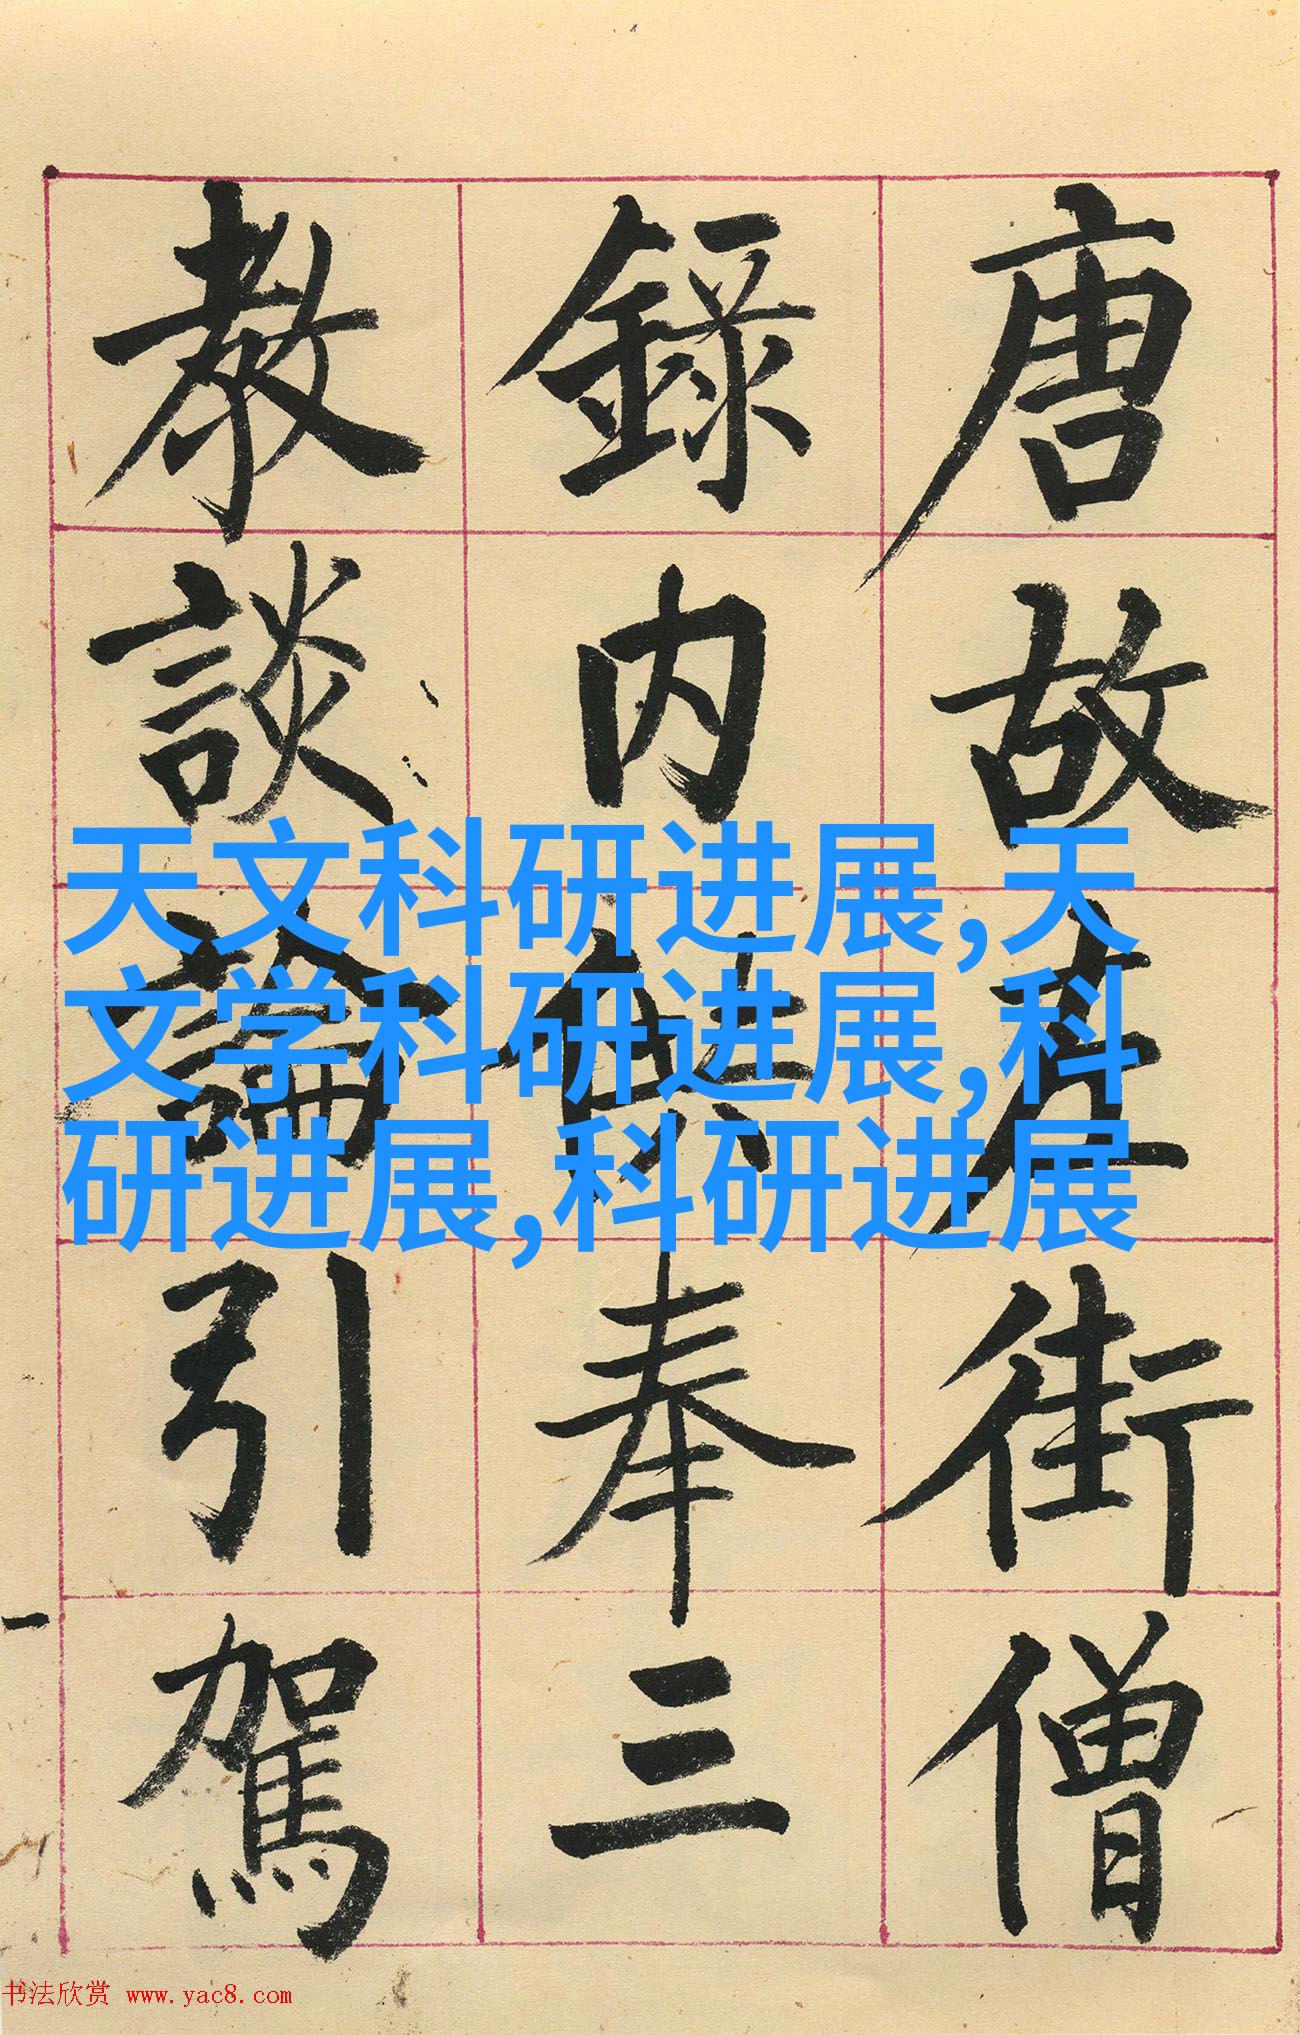 唐故左街僧
錄內供奉三
教談論引駕
天文科研进展,天
文学科研进展,科
研进展,科研进展
书法欣赏 www.yac8.com